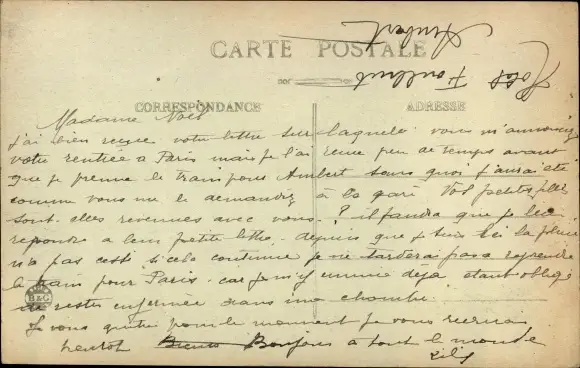 Hotel Foulhut
Ambert
CARTE POSTALE
CORRESPONDANCE
ADRESSE
Madame Noel
J'ai bien reçue votre lettre sur laquele vous m'annoncez
votre rentrée a Paris mais je l'ai reçue peu de temps avant
que je prenne le train pour Ambert sans quoi j'aurai été
comme vous me le demandiez à la gare Vos petites filles
sont elles revenues avec vous ? il faudra que je leur
reponde a leur petite lettre. depuis que je suis ici la pluie
n'a pas cessé si cela continue je ne tarderai pas a reprendre
le train pour Paris car je m'y ennuie deja etant obligé
de rester enfermée dans ma chambre.
Je vous quitte pour le moment je vous reverrai
bientot Bonjour a tout le monde
B&G